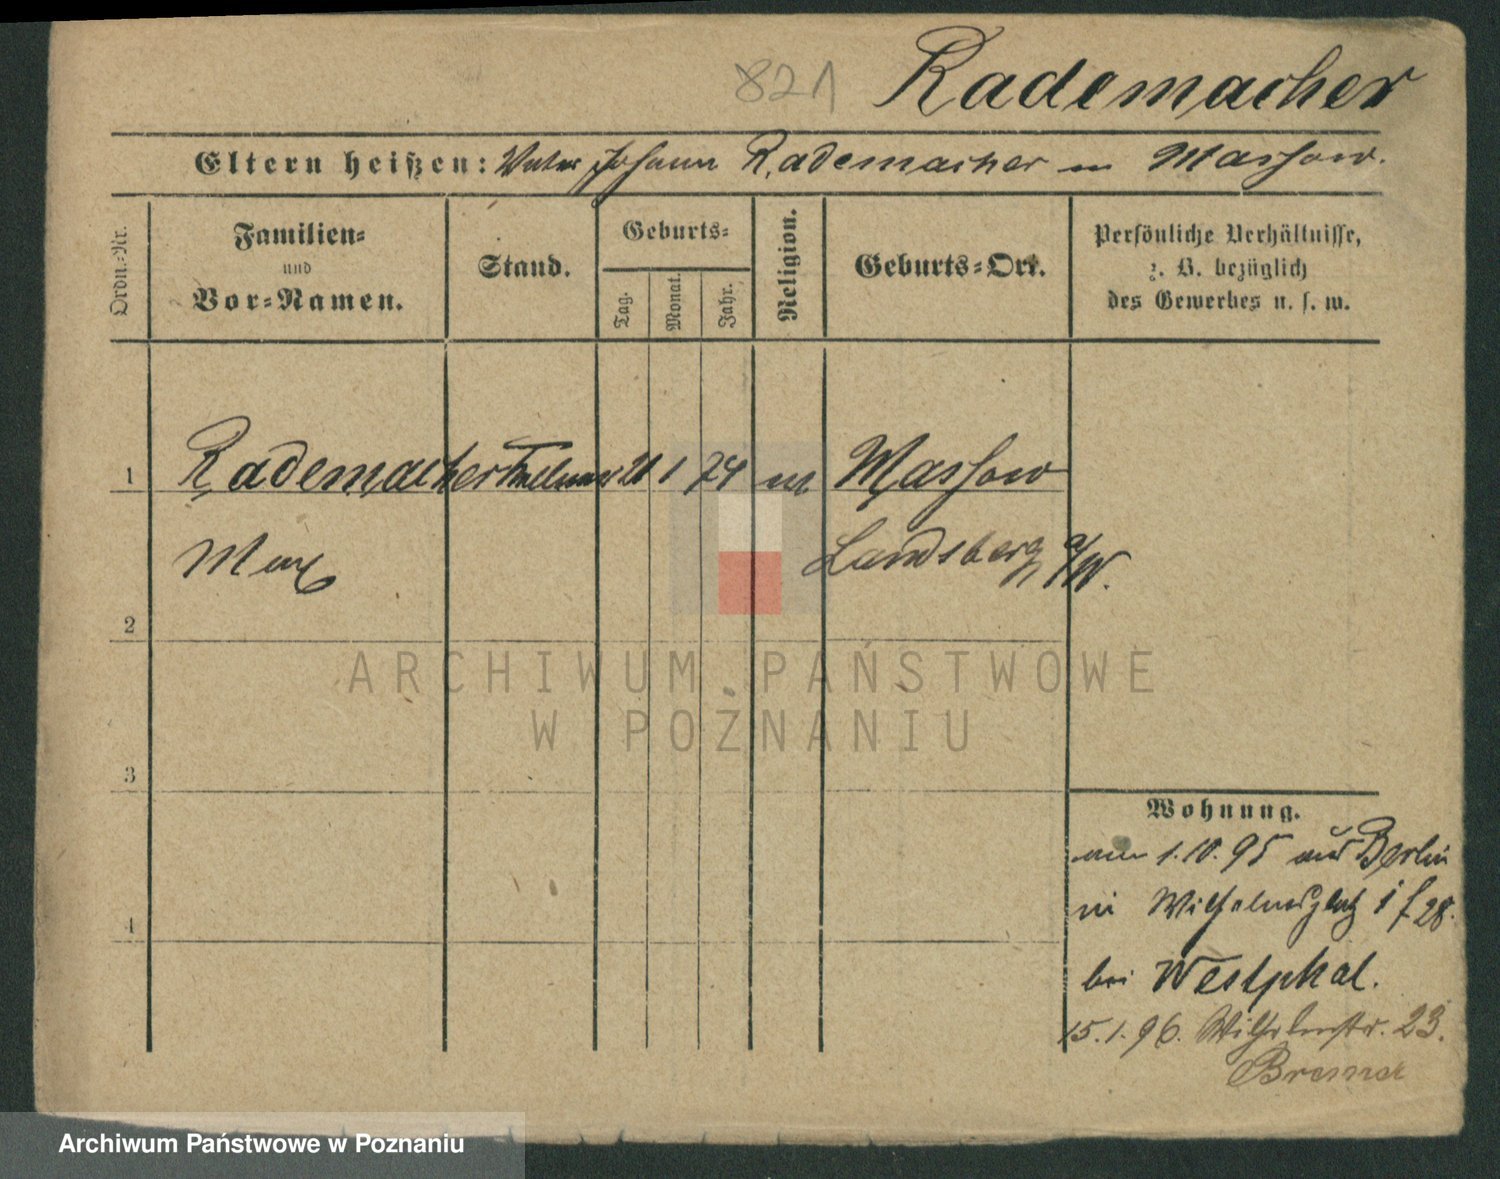 821 Rademacher
Eltern heißen: Vater Johann Rademacher in Massow.
Ordn.-Nr.
Familien-
und
Vor-Namen.
Stand.
Geburts-
Tag.
Monat.
Jahr.
Religion.
Geburts-Ort.
Persönliche Verhältnisse,
z. B. bezüglich
des Gewerbes u. s. w.
1 Rademacher Kellner 21 1 74 Massow
Max Landsberg a/W.
2
ARCHIWUM PAŃSTWOWE
W POZNANIU
3
Wohnung.
am 1.10.95 aus Berlin
in Wilhelmsplatz 28.
4
bei Westphal.
15.1.96. Wilhelmstr. 23.
Bremer
Archiwum Państwowe w Poznaniu